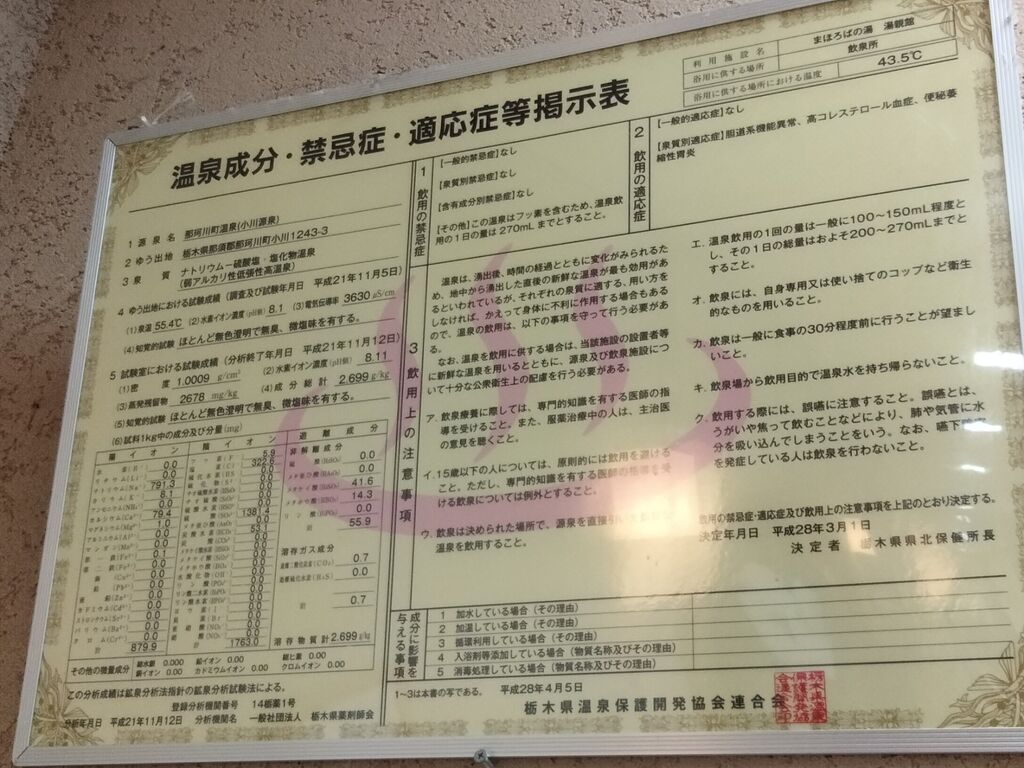 温泉成分・禁忌症・適応症等掲示表
利用施設名 まほろばの湯 湯親館
浴用に供する場所 飲泉所
浴用に供する場所における温度 43.5℃
1 源泉名 那珂川町温泉(小川源泉)
2 ゆう出地 栃木県那須郡那珂川町小川1243-3
3 泉質 ナトリウム－硫酸塩・塩化物温泉
(弱アルカリ性低張性高温泉)
4 ゆう出地における試験成績 (調査及び試験年月日 平成21年11月5日)
(1)泉温 55.4℃ (2)水素イオン濃度(pH値) 8.1 (3)電気伝導率 3630 μS/cm
(4)知覚的試験 ほとんど無色澄明で無臭、微塩味を有する。
5 試験室における試験成績 (分析終了年月日 平成21年11月12日)
(1)密度 1.0009 g/cm³ (2)水素イオン濃度(pH値) 8.11
(3)蒸発残留物 2678 mg/kg (4)成分総計 2.699 g/kg
(5)知覚的試験 ほとんど無色澄明で無臭、微塩味を有する。
(6)試料1kg中の成分及び分量(mg)
陽イオン 陰イオン 遊離成分
非解離成分
ナトリウム(Na⁺) 791.3
カリウム(K⁺) 8.1
カルシウム(Ca²⁺) 79.4
マグネシウム(Mg²⁺) 1.0
計 879.9
5.9
322.6
1381.4
53.1
計 1763.0
0.0
0.0
41.6
14.3
0.0
計 55.9
溶存ガス成分
0.7
0.0
計 0.7
溶存物質計 2.699 g/kg
その他の微量成分 総水銀 0.000 鉛イオン 0.00 総ヒ素 0.00
銅イオン 0.00 カドミウムイオン 0.00 クロムイオン 0.00
この分析成績は鉱泉分析法指針の鉱泉分析試験法による。
登録分析機関番号 14栃薬1号
分析年月日 平成21年11月12日 分析機関名 一般社団法人 栃木県薬剤師会
1 飲用の禁忌症
[一般的禁忌症]なし
[泉質別禁忌症]なし
[含有成分別禁忌症]なし
[その他]この温泉はフッ素を含むため、温泉飲
用の1日の量は 270mL までとすること。
2 飲用の適応症
[一般的適応症]なし
[泉質別適応症]胆道系機能異常、高コレステロール血症、便秘萎
縮性胃炎
3 飲用上の注意事項
温泉は、湧出後、時間の経過とともに変化がみられるた
め、地中から湧出した直後の新鮮な温泉が最も効用があ
るといわれているが、それぞれの泉質に適する、用い方を
しなければ、かえって身体に不利に作用する場合もある
ので、温泉の飲用は、以下の事項を守って行う必要があ
る。
なお、温泉を飲用に供する場合は、当該施設の設置者等
に新鮮な温泉を用いるとともに、源泉及び飲泉施設につ
いて十分な公衆衛生上の配慮を行う必要がある。
ア. 飲泉療養に際しては、専門的知識を有する医師の指
導を受けること。また、服薬治療中の人は、主治医
の意見を聴くこと。
イ. 15歳以下の人については、原則的には飲用を避ける
こと。ただし、専門的知識を有する医師の指導を受
ける飲泉については例外とすること。
ウ. 飲泉は決められた場所で、源泉を直接引いた
温泉を飲用すること。
エ. 温泉飲用の1回の量は一般に100～150mL程度と
し、その1日の総量はおよそ200～270mLまでと
すること。
オ. 飲泉には、自身専用又は使い捨てのコップなど衛生
的なものを用いること。
カ. 飲泉は一般に食事の30分程度前に行うことが望まし
いこと。
キ. 飲泉場から飲用目的で温泉水を持ち帰らないこと。
ク. 飲用する際には、誤嚥に注意すること。誤嚥とは、
うがいや焦って飲むことなどにより、肺や気管に水
分を吸い込んでしまうことをいう。なお、嚥下障害
を発症している人は飲泉を行わないこと。
飲用の禁忌症・適応症及び飲用上の注意事項を上記のとおり決定する。
決定年月日 平成28年3月1日
決定者 栃木県県北保健所長
成分に影響を与える事項
1 加水している場合 (その理由)
2 加温している場合 (その理由)
3 循環利用している場合 (その理由)
4 入浴剤等添加している場合 (物質名称及びその理由)
5 消毒処理している場合 (物質名称及びその理由)
1～3は本書の写である。 平成28年4月5日
栃木県温泉保護開発協会連合会